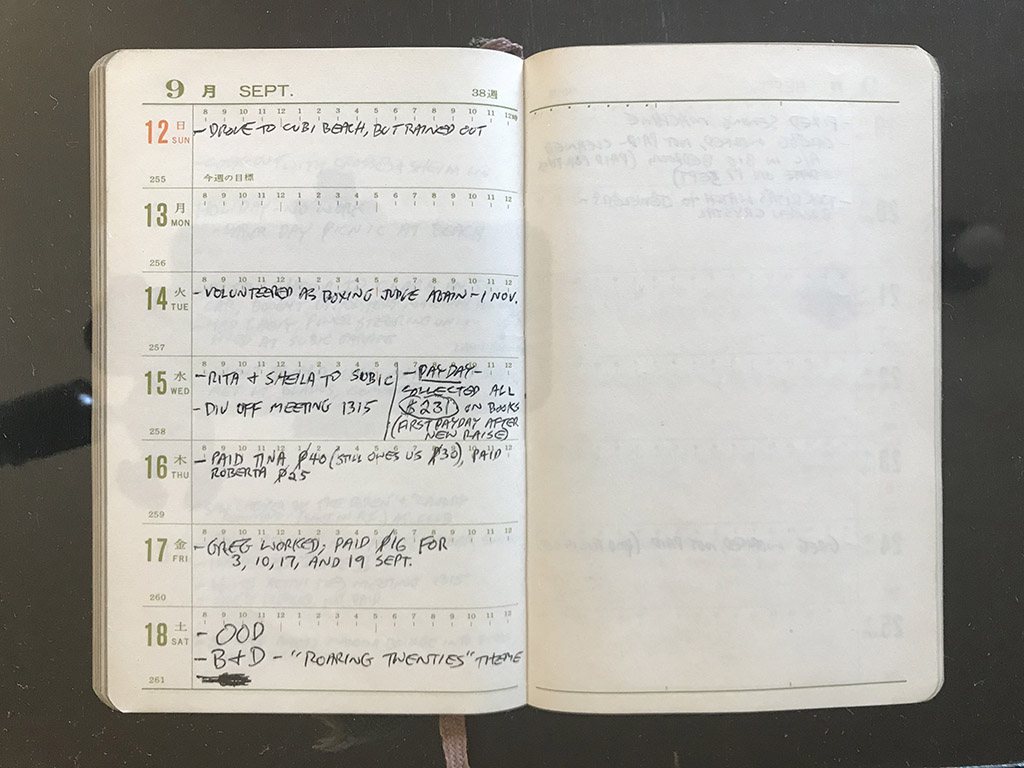 9 月 SEPT. 38週
8 9 10 11 12 1 2 3 4 5 6 7 8 9 10 11 12時
12 日 SUN 255
- DROVE TO CUBI BEACH, BUT RAINED OUT
今週の目標
8 9 10 11 12 1 2 3 4 5 6 7 8 9 10 11 12
13 月 MON 256
8 9 10 11 12 1 2 3 4 5 6 7 8 9 10 11 12
14 火 TUE 257
- VOLUNTEERED AS BOXING JUDGE AGAIN - 1 NOV.
8 9 10 11 12 1 2 3 4 5 6 7 8 9 10 11 12
15 水 WED 258
- RITA + SHEILA TO SUBIC
- DIV OFF MEETING 1315
- PAYDAY -
COLLECTED ALL
$231 ON BOOKS
(FIRST PAYDAY AFTER
NEW RAISE)
8 9 10 11 12 1 2 3 4 5 6 7 8 9 10 11 12
16 木 THU 259
- PAID TINA $40 (STILL OWES US $30), PAID
ROBERTA $25
8 9 10 11 12 1 2 3 4 5 6 7 8 9 10 11 12
17 金 FRI 260
- GREG WORKED; PAID $16 FOR
3, 10, 17, AND 19 SEPT.
8 9 10 11 12 1 2 3 4 5 6 7 8 9 10 11 12
18 土 SAT 261
- OOD
- B+D - "ROARING TWENTIES" THEME